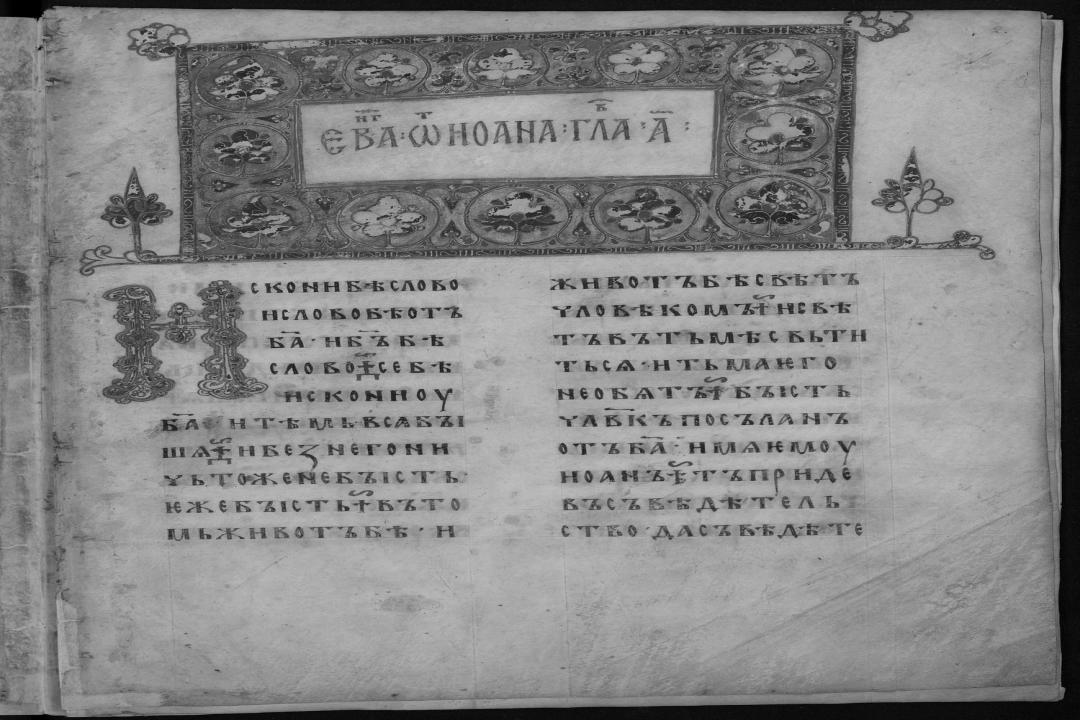 ЕВАНГ · Ѿ ИОАНА : ГЛАВ · А҃ :
ИСКОНИ БѢ СЛОВО
И СЛОВО БѢ ОТЪ
Б҃А · И Б҃Ъ БѢ
СЛОВО Д҃ СЕ БѢ
ИСКОНИ ОУ
Б҃А · И ТѢМЬ ВСѦ БЪІ
ШѦ Д҃ И БЕЗ НЕГО НИ
ЧЬТОЖЕ НЕ БЪІСТЬ
ѤЖЕ БЪІСТЬ Г҃ ВЪ ТО
МЬ ЖИВОТЪ БѢ · И
ЖИВОТЪ БѢ СВѢТЪ
ЧЛОВѢКОМЪ І҃ И СВѢ
ТЪ ВЪ ТЬМѢ СВЬТИ
ТЬСѦ · И ТЬМА ѤГО
НЕ ОБѦТЪ І҃ БЪІСТЬ
ЧЛ҃ВКЪ ПОСЪЛАНЪ
ОТЪ Б҃А · ИМѦ ѤМОУ
ИОАНЪ Г҃ ТЪ ПРИДЕ
ВЪ СЪВѢДѢТЕЛЬ
СТВО · ДА СЪВѢДѢТЕ